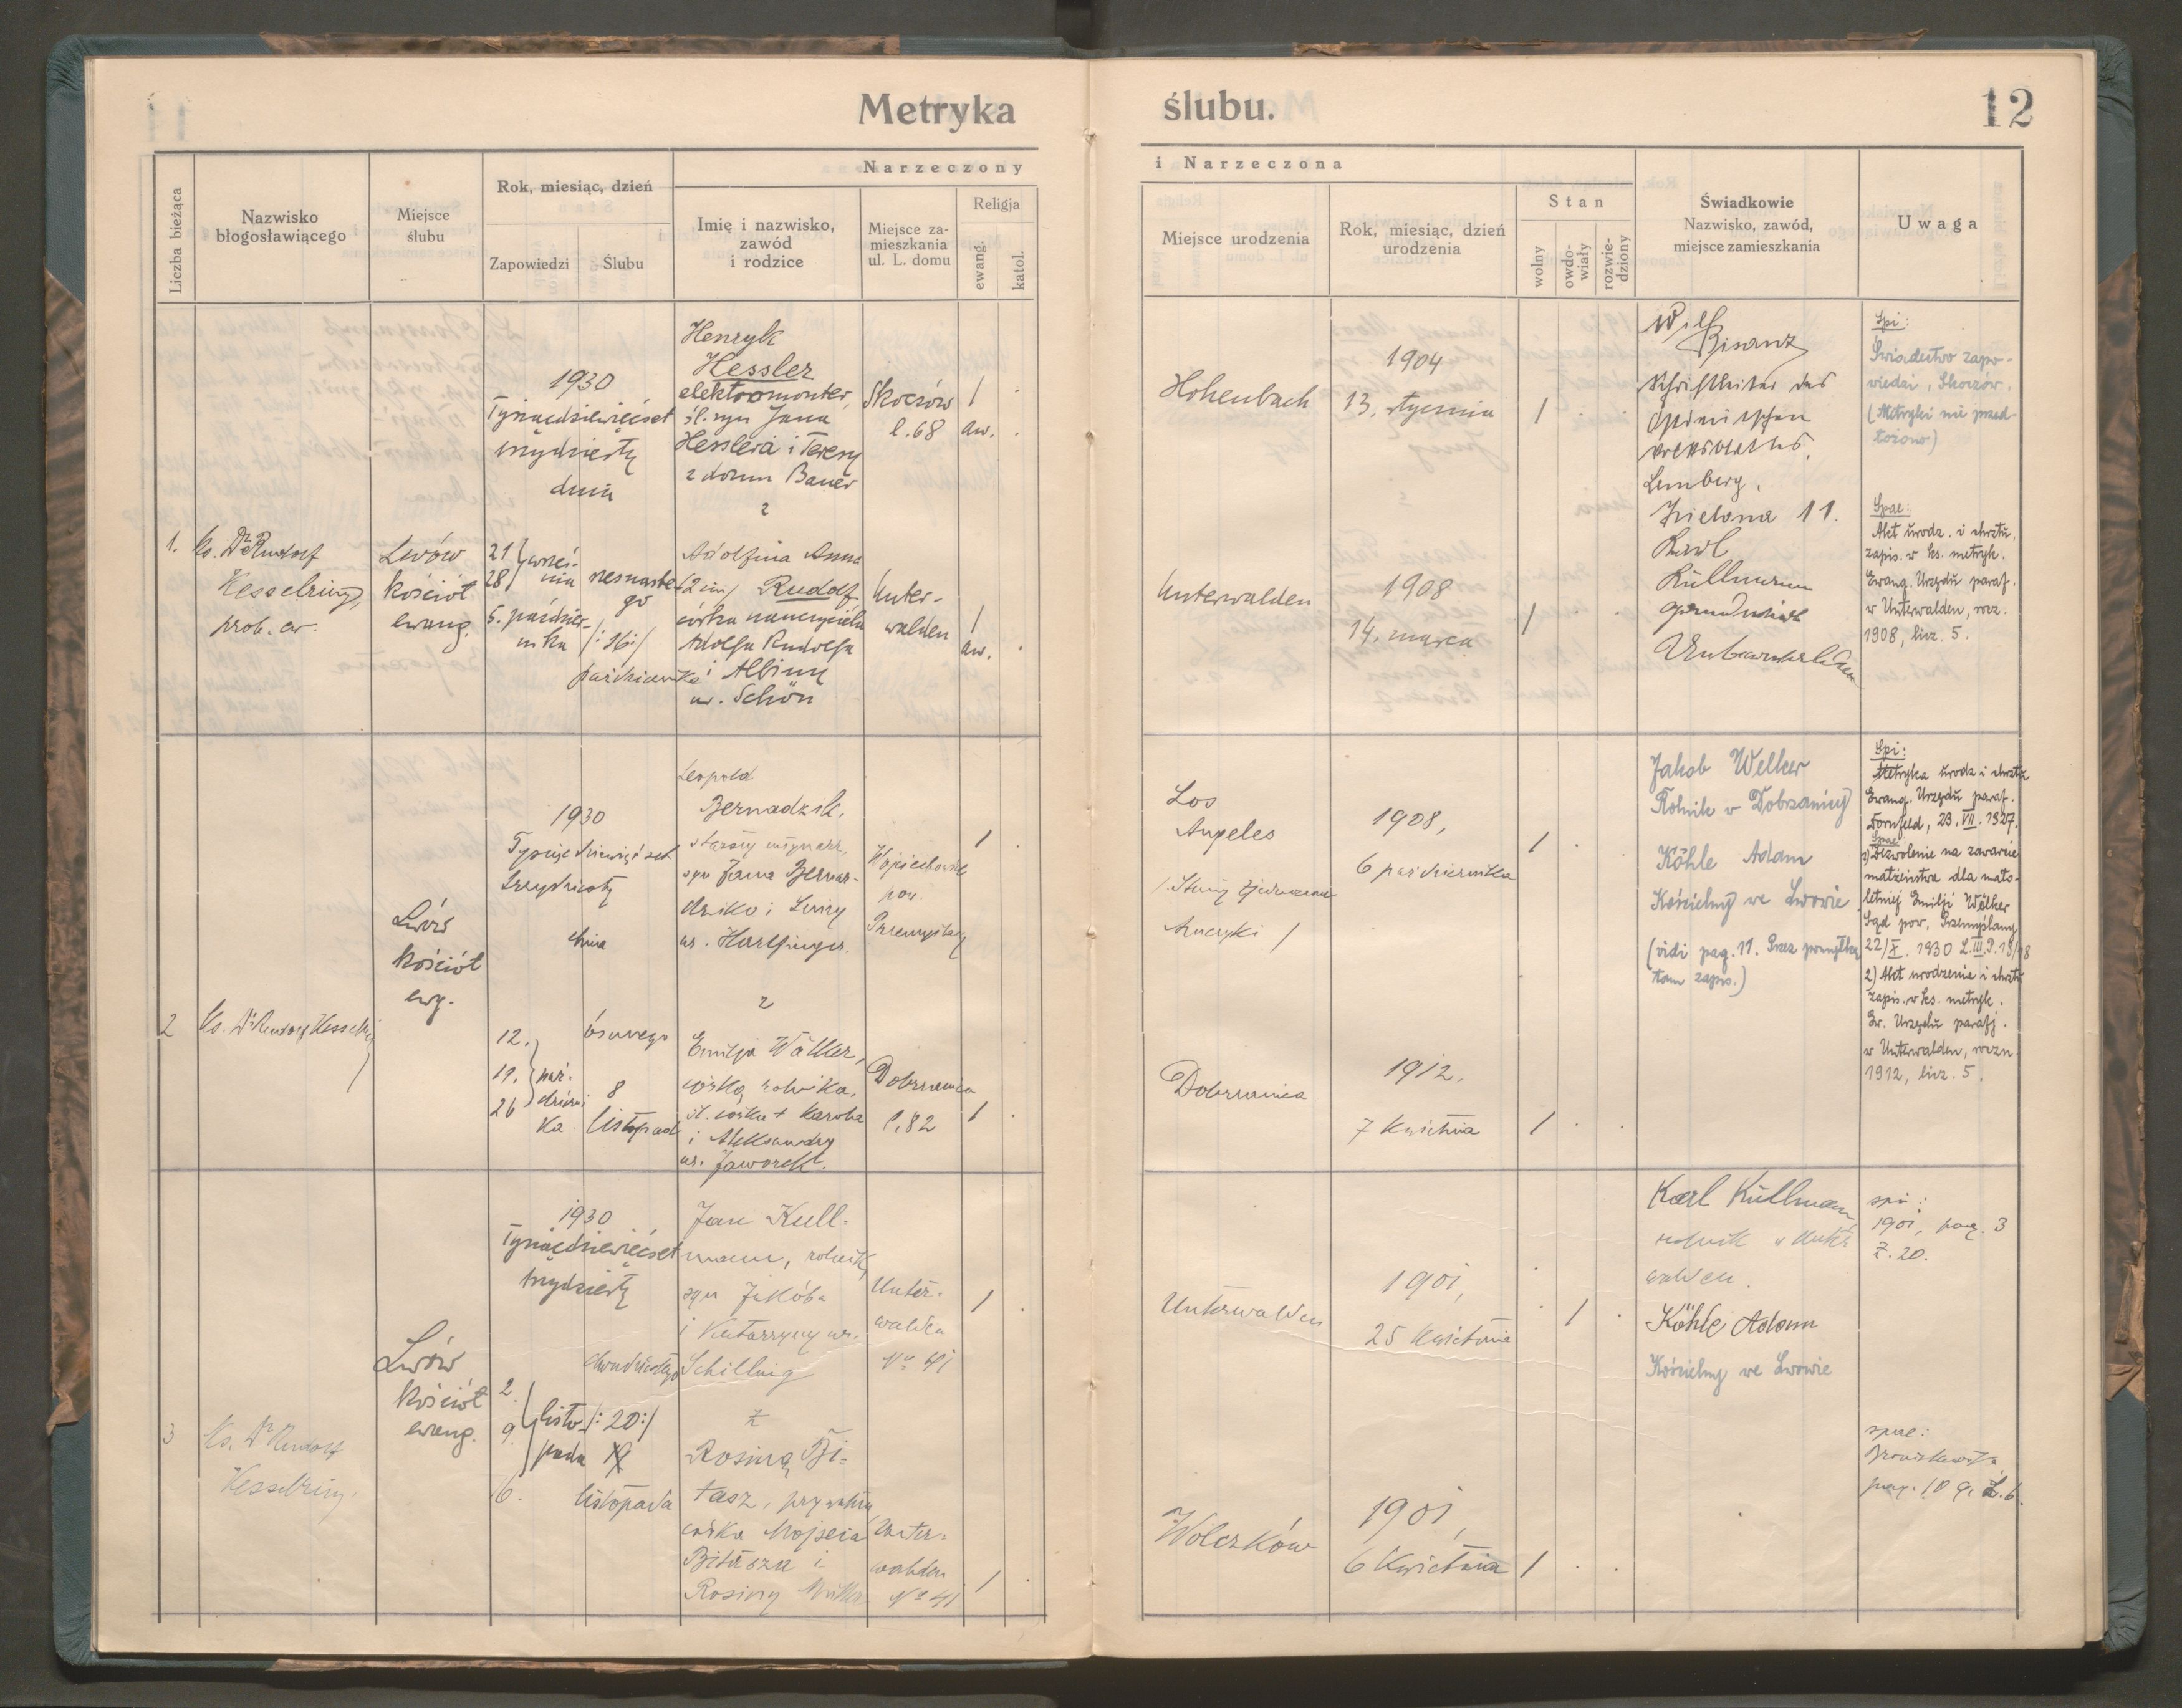 Metryka ślubu.
12
Liczba bieżąca
Nazwisko
błogosławiącego
Miejsce
ślubu
Rok, miesiąc, dzień
Zapowiedzi
Ślubu
Narzeczony
Imię i nazwisko,
zawód
i rodzice
Miejsce za-
mieszkania
ul. L. domu
Religja
ewang.
katol.
i Narzeczona
Miejsce urodzenia
Rok, miesiąc, dzień
urodzenia
Stan
wolny
owdo-
wiały
rozwie-
dziony
Świadkowie
Nazwisko, zawód,
miejsce zamieszkania
Uwaga
1.
Ks. Dr Rudolf
Kesselring,
prob. ew.
Lwów
kościół
ewang.
1930
Tysiącdziewięćset
trzydziesty
dnia
21
28
wrześ-
nia
5. paździer-
nika
szesnaste-
go
/:16:/
października
Henryk
Hessler
elektromonter,
śl. syn Jana
Hesslera i Teresy
z domu Bauer
z
Adolfina Anna
(2 im) Rudolf
córka nauczyciela
Adolfa Rudolfa
i Albiny
ur. Schön
Skoczów
l. 68
Unter-
walden
1
aw.
1
aw.
Hohenbach
Unterwalden
1904
13. stycznia
1908
14. marca
1
1
Wilh
Bisanz
Schriftleiter des
Ostdeutschen
Volksblattes,
Lemberg,
Zielona 11.
Karl
Kullmann
Unterwalden
Spi:
Świadectwo zapo-
wiedzi, Skoczów.
(Metryki nie przed-
łożono)
Spae:
Akt urodz. i chrztu,
zapis. w ks. metryk.
Ewang. Urzędu paraf.
w Unterwalden, rocz.
1908, licz. 5.
2
Ks. Dr Rudolf Kesselring
Lwów
kościół
ewg.
1930
Tysiącdziewięćset
trzydziesty
dnia
12.
19.
26
paź-
dzierni
ka
ósmego
8
listopad
Leopold
Bernadzik,
starszy młynarz,
syn Jana Bernar-
dzika i Luizy
ur. Harlfinger.
z
Emilja Wälker,
córką rolnika,
śl. córka + Karola
i Aleksandry
ur. Jaworsk.
Wojciechowice
pow.
Przemyślany
Dobrzanica
l. 82
1
1
Los
Angeles
/Stany Zjednoczone
Ameryki /
Dobrzanica
1908,
6 października
1912,
7 kwietnia
1
1
Jakob Welker
Rolnik w Dobrzanicy
Köhle Adam
Kościelny we Lwowie
(vidi pag. 11. Przez pomyłkę
tam zapis.)
Spi:
Metryka urodz i chrztu
Ewang. Urzędu paraf.
Dornfeld, 23. VII. 1927.
Spae:
1) Zezwolenie na zawarcie
małżeństwa dla mało-
letniej Emilji Wölker
Sąd pow. Przemyślany
22/X. 1930 L. III. P. 19/98
2) Akt urodzenia i chrztu
zapis. w ks. metryk.
Ew. Urzędu parafj.
w Unterwalden, roczn.
1912, licz. 5.
3
Ks. Dr Rudolf
Kesselring.
Lwów
kościół
ewang.
1930
Tysiącdziewięćset
trzydziesty
2
9.
listo-
pada
16.
dwudziestego
/:20:/
listopada
Jan Kull-
mann, rolnik,
syn Jakóba
i Katarzyny ur.
Schilling
z
Rosiną Bi-
tasz, prywatną
córka Mojseia
Bitasza i
Rosiny Müller
Unter-
walden
No 41
Unter-
walden
No 41
1
1
Unterwalden
Wolczków
1901,
25 kwietnia
1901,
6 Kwietnia
1
1
Karl Kullmann,
rolnik w Unter
walden.
Köhle Adam
Kościelny we Lwowie
spi:
1901, pag. 3
Z. 20.
spae: